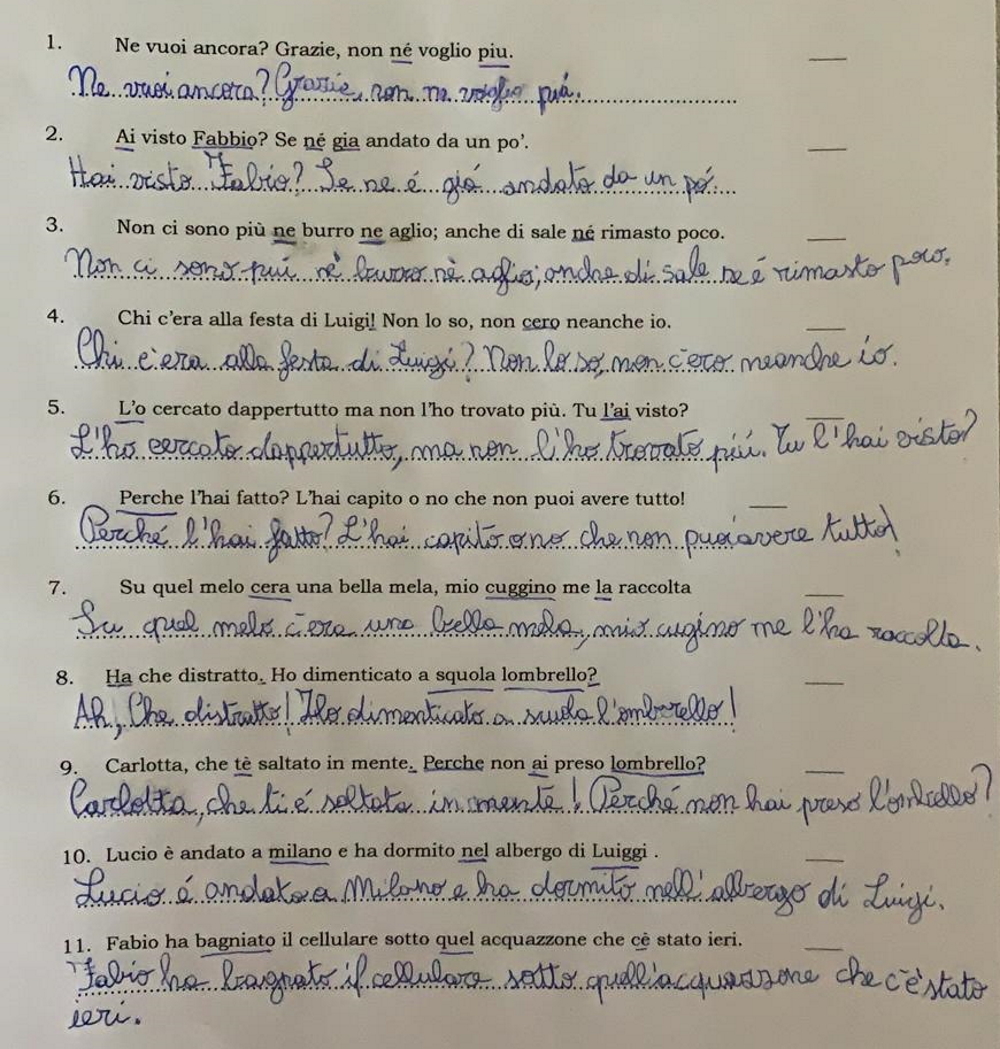 1. Ne vuoi ancora? Grazie, non né voglio piu.
Ne vuoi ancora? Grazie, non ne voglio piú.
2. Ai visto Fabbio? Se né gia andato da un po'.
Hai visto Fabio? Se ne é giá andato da un pó.
3. Non ci sono più ne burro ne aglio; anche di sale né rimasto poco.
Non ci sono puí nè burro nè aglio; anche di sale ne é rimasto poco.
4. Chi c'era alla festa di Luigi! Non lo so, non cero neanche io.
Chi c'era alla festa di Luigi? Non lo so, non c'ero neanche io.
5. L'o cercato dappertutto ma non l'ho trovato più. Tu l'ai visto?
L'ho cercato dappertutto, ma non l'ho trovato piú. Tu l'hai visto?
6. Perche l'hai fatto? L'hai capito o no che non puoi avere tutto!
Perché l'hai fatto? L'hai capito o no che non puoi avere tutto!
7. Su quel melo cera una bella mela, mio cuggino me la raccolta
Su quel melo c'era una bella mela, mio cugino me l'ha raccolta.
8. Ha che distratto. Ho dimenticato a squola lombrello?
Ah, Che distratto! Ho dimenticato a scuola l'ombrello!
9. Carlotta, che tè saltato in mente. Perche non ai preso lombrello?
Carlotta, che ti é saltato in mente! Perché non hai preso l'ombrello?
10. Lucio è andato a milano e ha dormito nel albergo di Luiggi .
Lucio é andato a Milano e ha dormito nell' albergo di Luigi.
11. Fabio ha bagniato il cellulare sotto quel acquazzone che cè stato ieri.
Fabio ha bagnato il cellulare sotto quell'acquazzone che c'è stato
ieri.